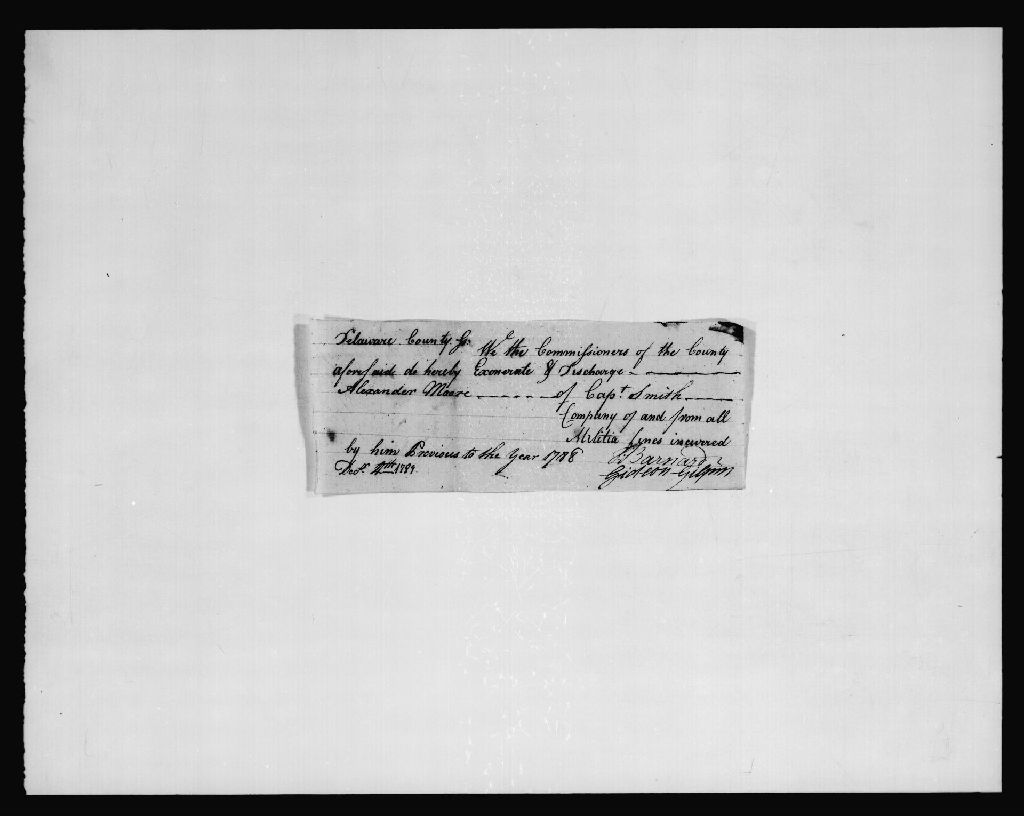 Delaware County Ss. We the Commissioners of the County
aforesaid do hereby Exonerate & Discharge
Alexander Moore of Capt. Smith
Company of and from all
Militia fines incurred
by him Previous to the Year 1788
Decr. 4th 1789. Barnard
Gideon Gilpin